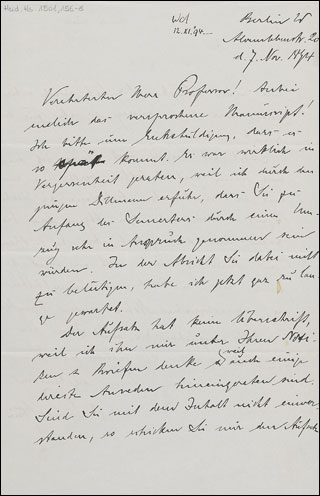 Wol
12.XI.94.
Berlin W
d. 7. Nov. 1894
Verehrtester Herr Professor! Anbei
endlich das versprochene Manuscript!
Ich bitte um Entschuldigung, dass es
so spät kommt. Es war wirklich in
Vergessenheit geraten, weil ich durch den
jungen erfuhr, dass Sie zu
Anfang des Semesters durch einen Um-
zug sehr in Anspruch genommen sein
würden. In der Absicht Sie dabei nicht
zu belästigen, habe ich jetzt gar zu lan-
ge gewartet.
Der Aufsatz hat keine Überschrift,
weil ich ihn mir unter Ihren
denke weil auch einige
direkte Anreden hineingeraten sind.
Sind Sie mit dem Inhalt nicht einver-
standen, so schicken Sie mir den Aufsatz